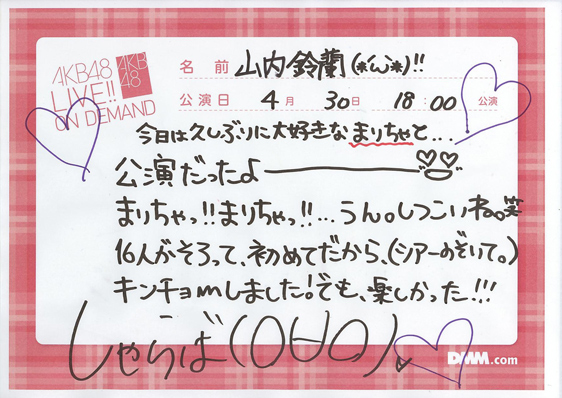 AKB48
LIVE!!
ON DEMAND
AKB
48
名前 山内鈴蘭(*'ω'*)!!
公演日 4月 30日 18:00 公演
今日は久しぶりに大好きなまりちゃと...
公演だったよ━━━━━
まりちゃっ!!まりちゃっ!!...うん。しつこいね。笑
16人がそろって、初めてだから、(シアターのぞいて。)
キンチョmしました!でも、楽しかった!!!
しゃらば(〇∀〇)ノ
DMM.com